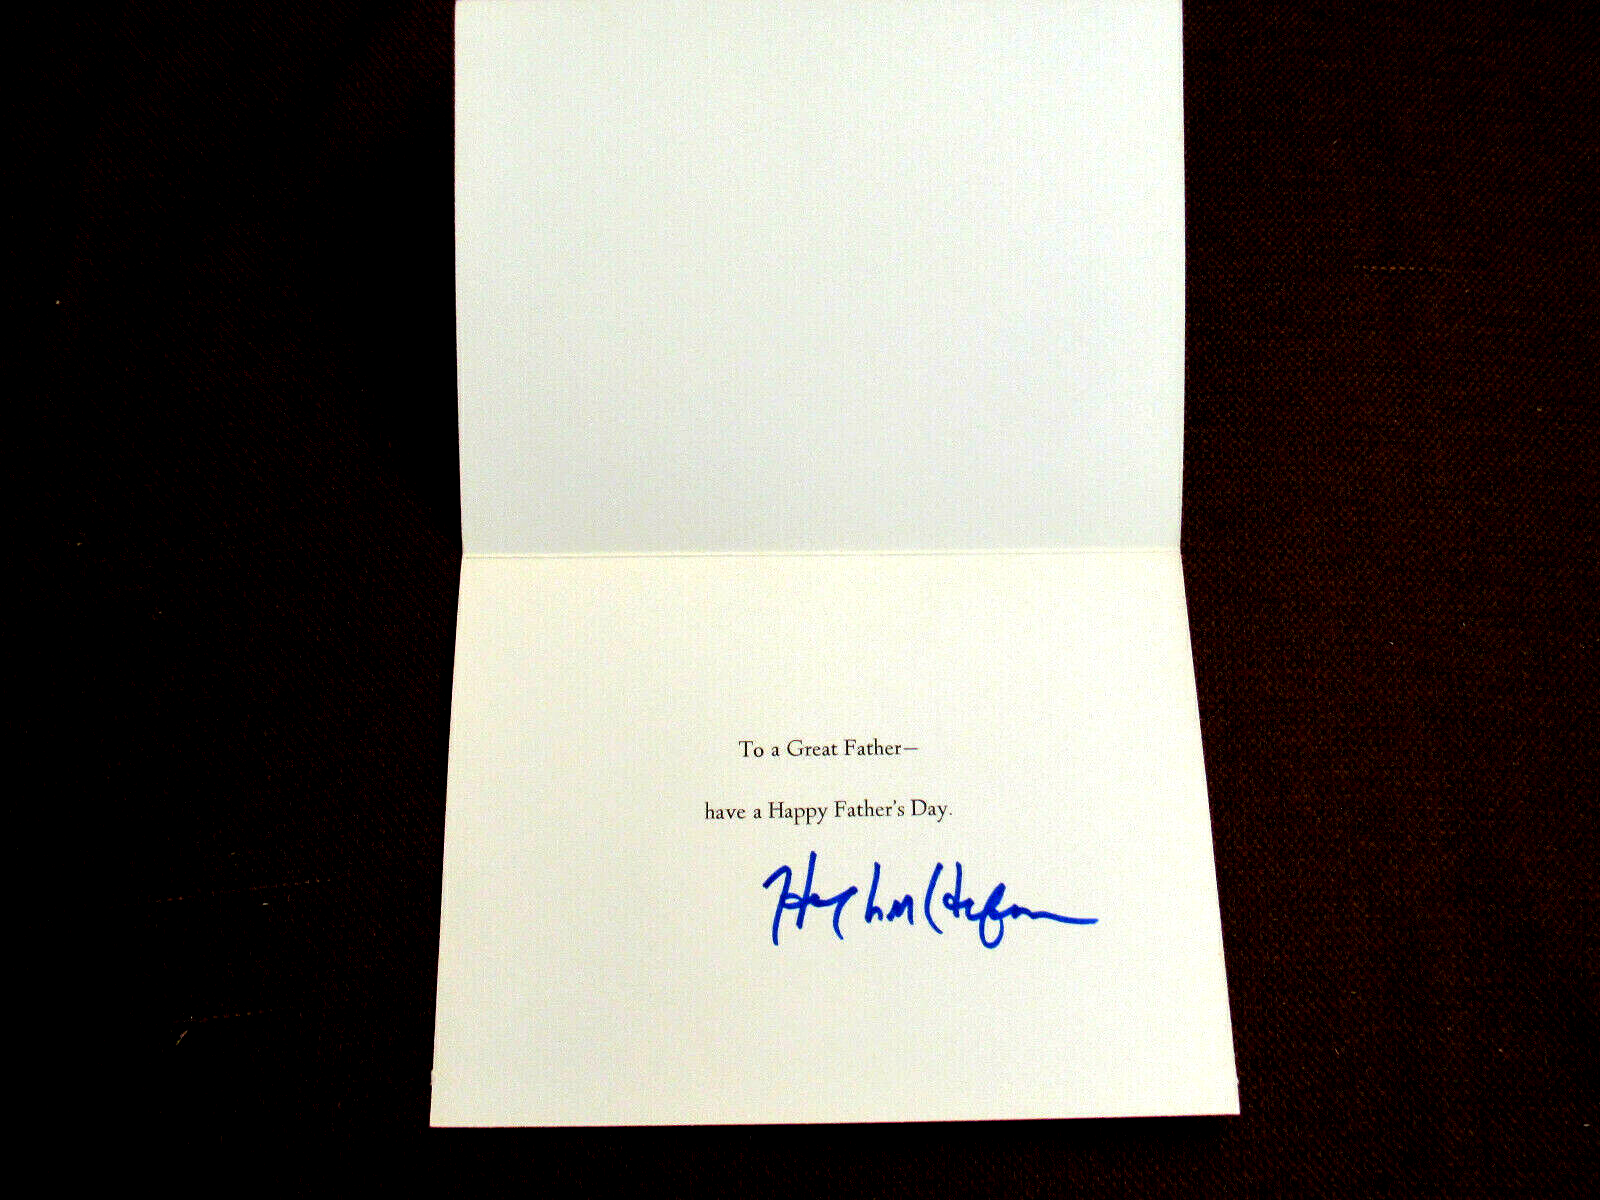 To a Great Father—
have a Happy Father's Day.
Hugh M Hefner